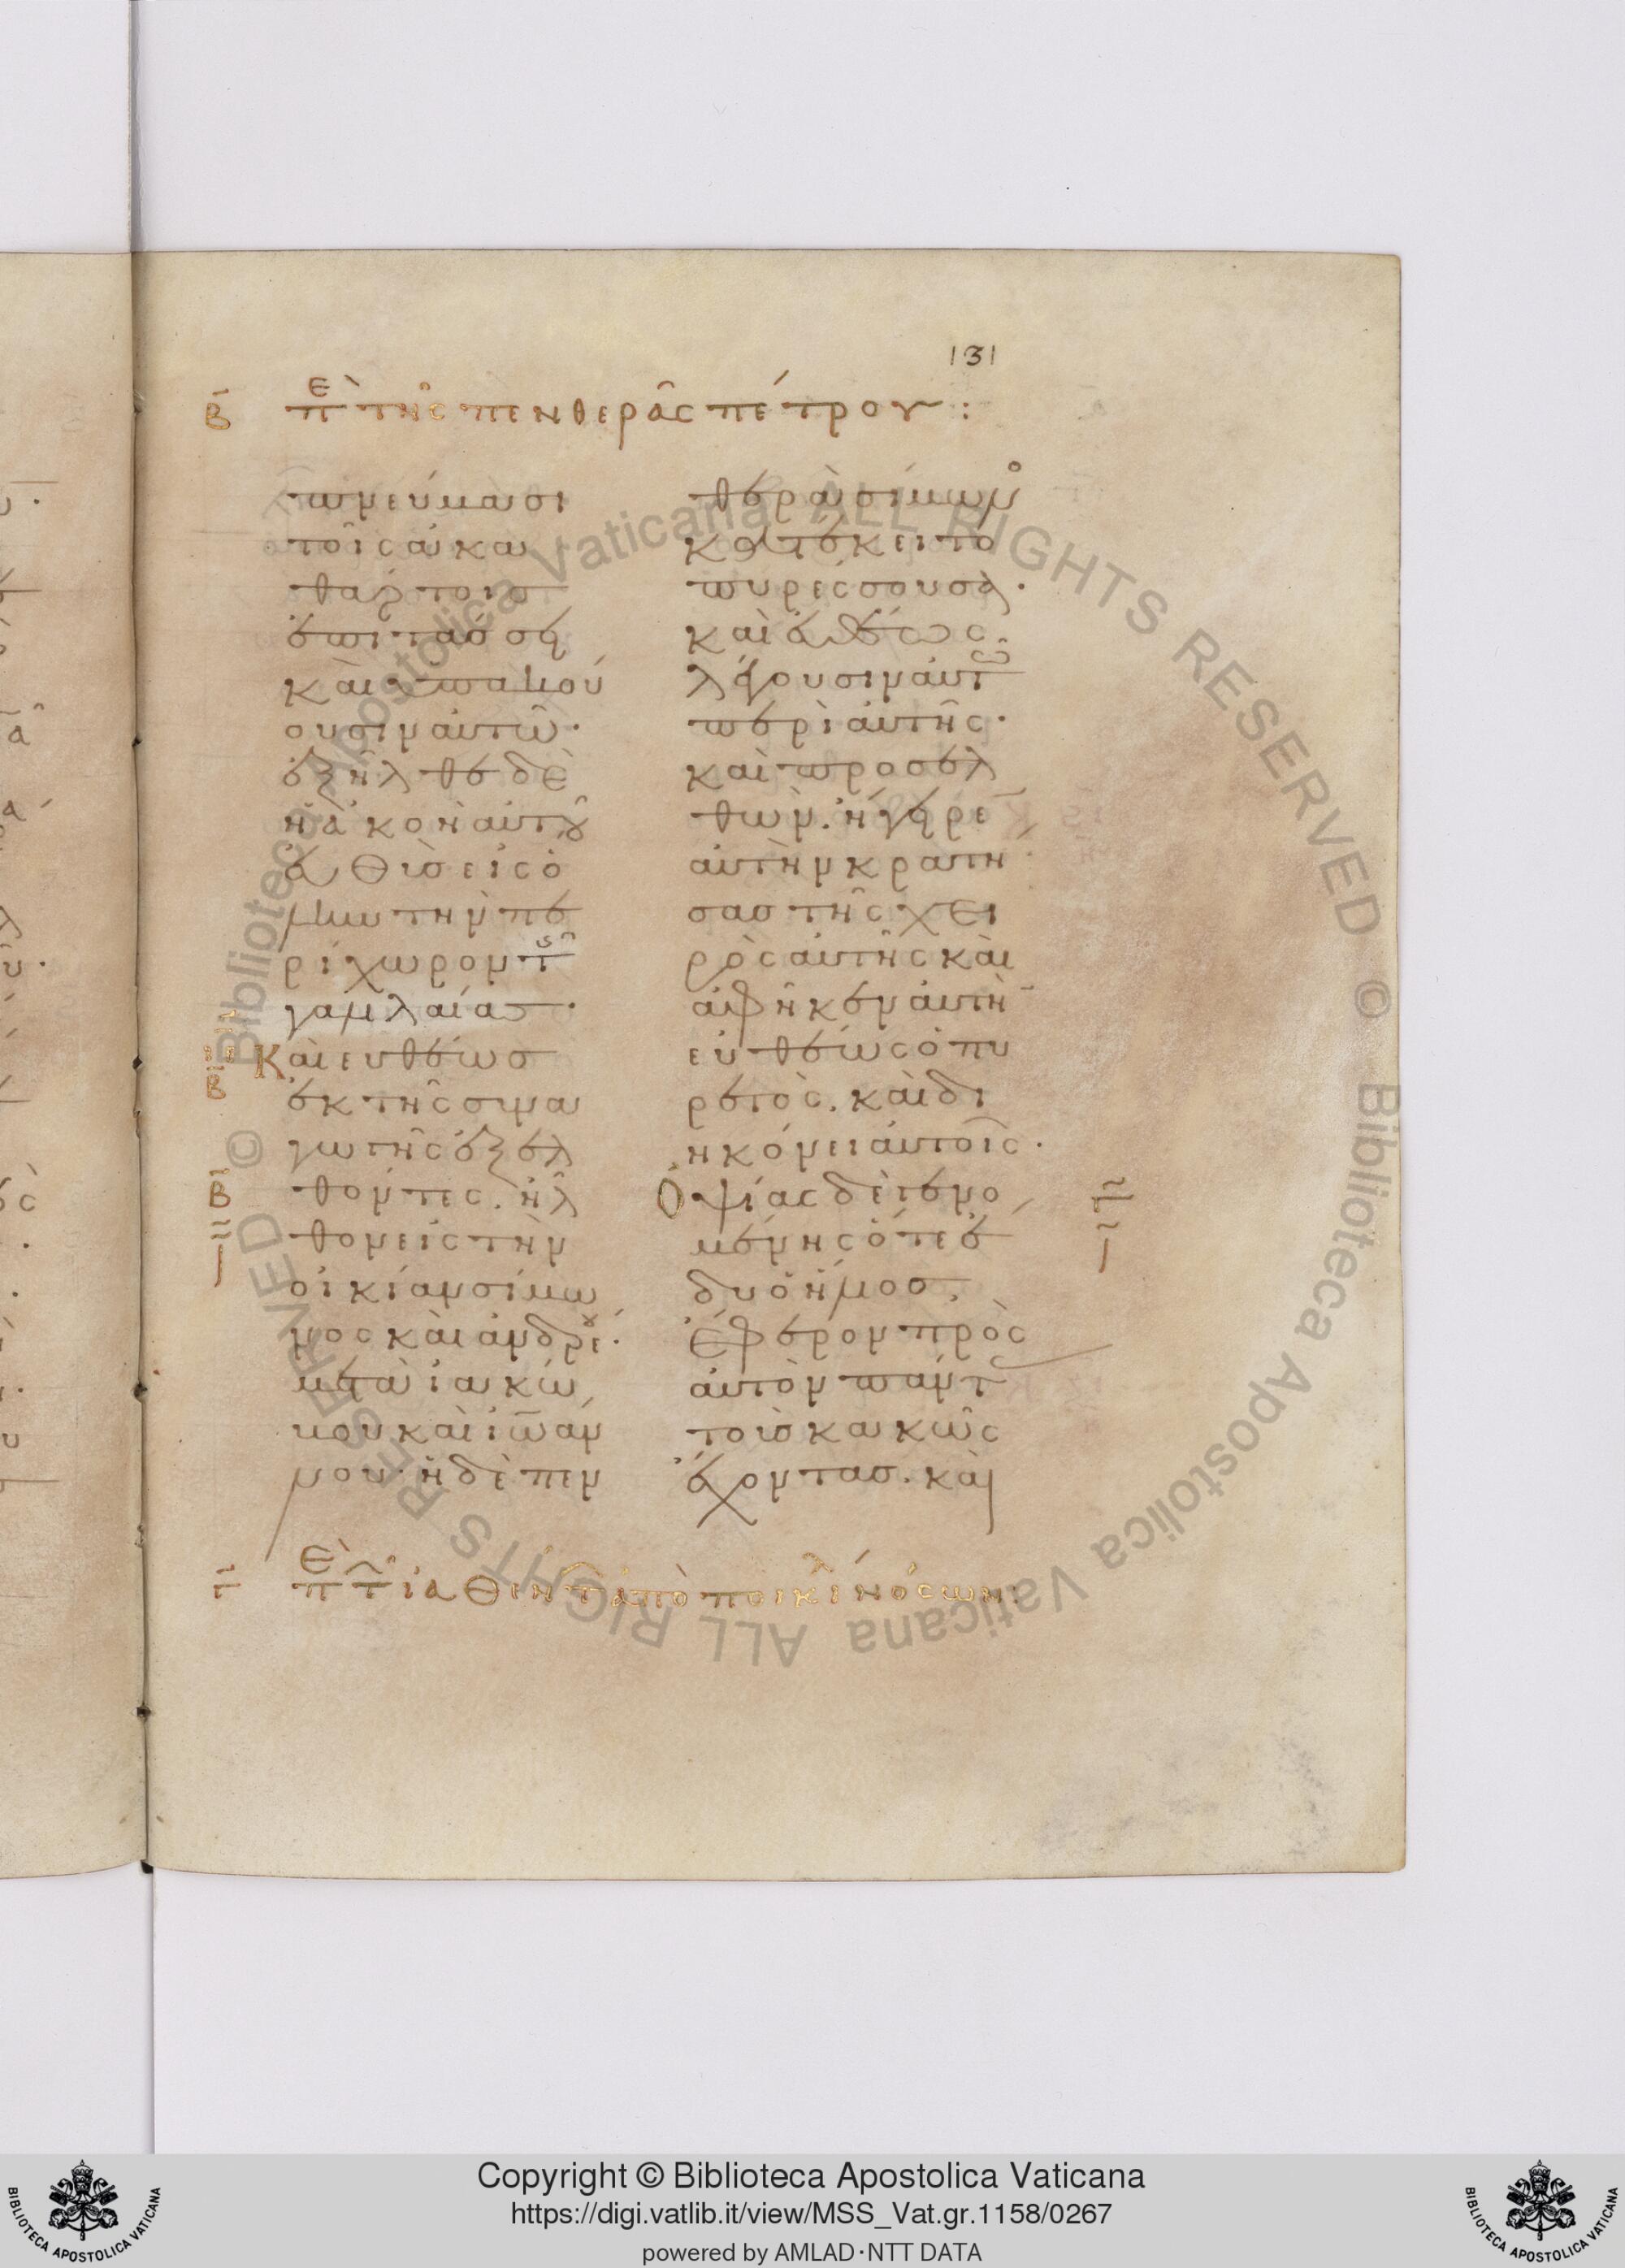 131
Β̅ Πὲ τῆς πενθερᾶς πέτρου:
πνεύμασι
τοῖς ἀκα
θάρτοις
ἐπιτάσσει
καὶ ὑπακού
ουσιν αὐτῷ.
ἐξῆλθε δὲ
ἡ ἀκοὴ αὐτοῦ
εὐθὺς εἰς ὅ
λην τὴν πε
ρίχωρον τῆς
γαλιλαίας.
Και ευθέως
ἐκ τῆς συνα
γωγῆς ἐξελ
θόντες. ἦλ
θον εἰς τὴν
οἰκίαν σίμω
νος καὶ ἀνδρέου.
μετὰ ἰακώ
βου καὶ ἰωάν
νου. ἡ δὲ πεν
θερὰ σίμωνος
κατέκειτο
πυρέσσουσα.
καὶ εὐθέως
λέγουσιν αὐτῷ
περὶ αὐτῆς.
καὶ προσελ
θὼν. ἤγειρεν
αὐτὴν κρατή
σας τῆς χει
ρὸς αὐτῆς καὶ
ἀφῆκεν αὐτὴν
εὐθέως ὁ πυ
ρετὸς. καὶ δι
ηκόνει αὐτοῖς.
Ὀψίας δὲ γενο
μένης ὅτε ἔ
δυ ὁ ἥλιος.
Ἔφερον πρὸς
αὐτὸν πάντας
τοὺς κακῶς
ἔχοντας. καὶ
Γ̅ Πὲ τ ἰαθέντ ἀπὸ ποικίλ νόσων:
Copyright © Biblioteca Apostolica Vaticana
https://digi.vatlib.it/view/MSS_Vat.gr.1158/0267
powered by AMLAD·NTT DATA
© Biblioteca Apostolica Vaticana ALL RIGHTS RESERVED © Biblioteca Apostolica Vaticana ALL RIGHTS RESERVED
BIBLIOTECA APOSTOLICA VATICANA
BIBLIOTECA APOSTOLICA VATICANA